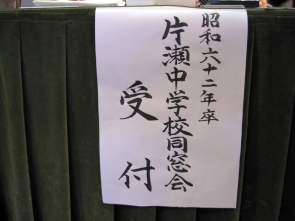 昭和六十二年卒
片瀬中学校同窓会
受付